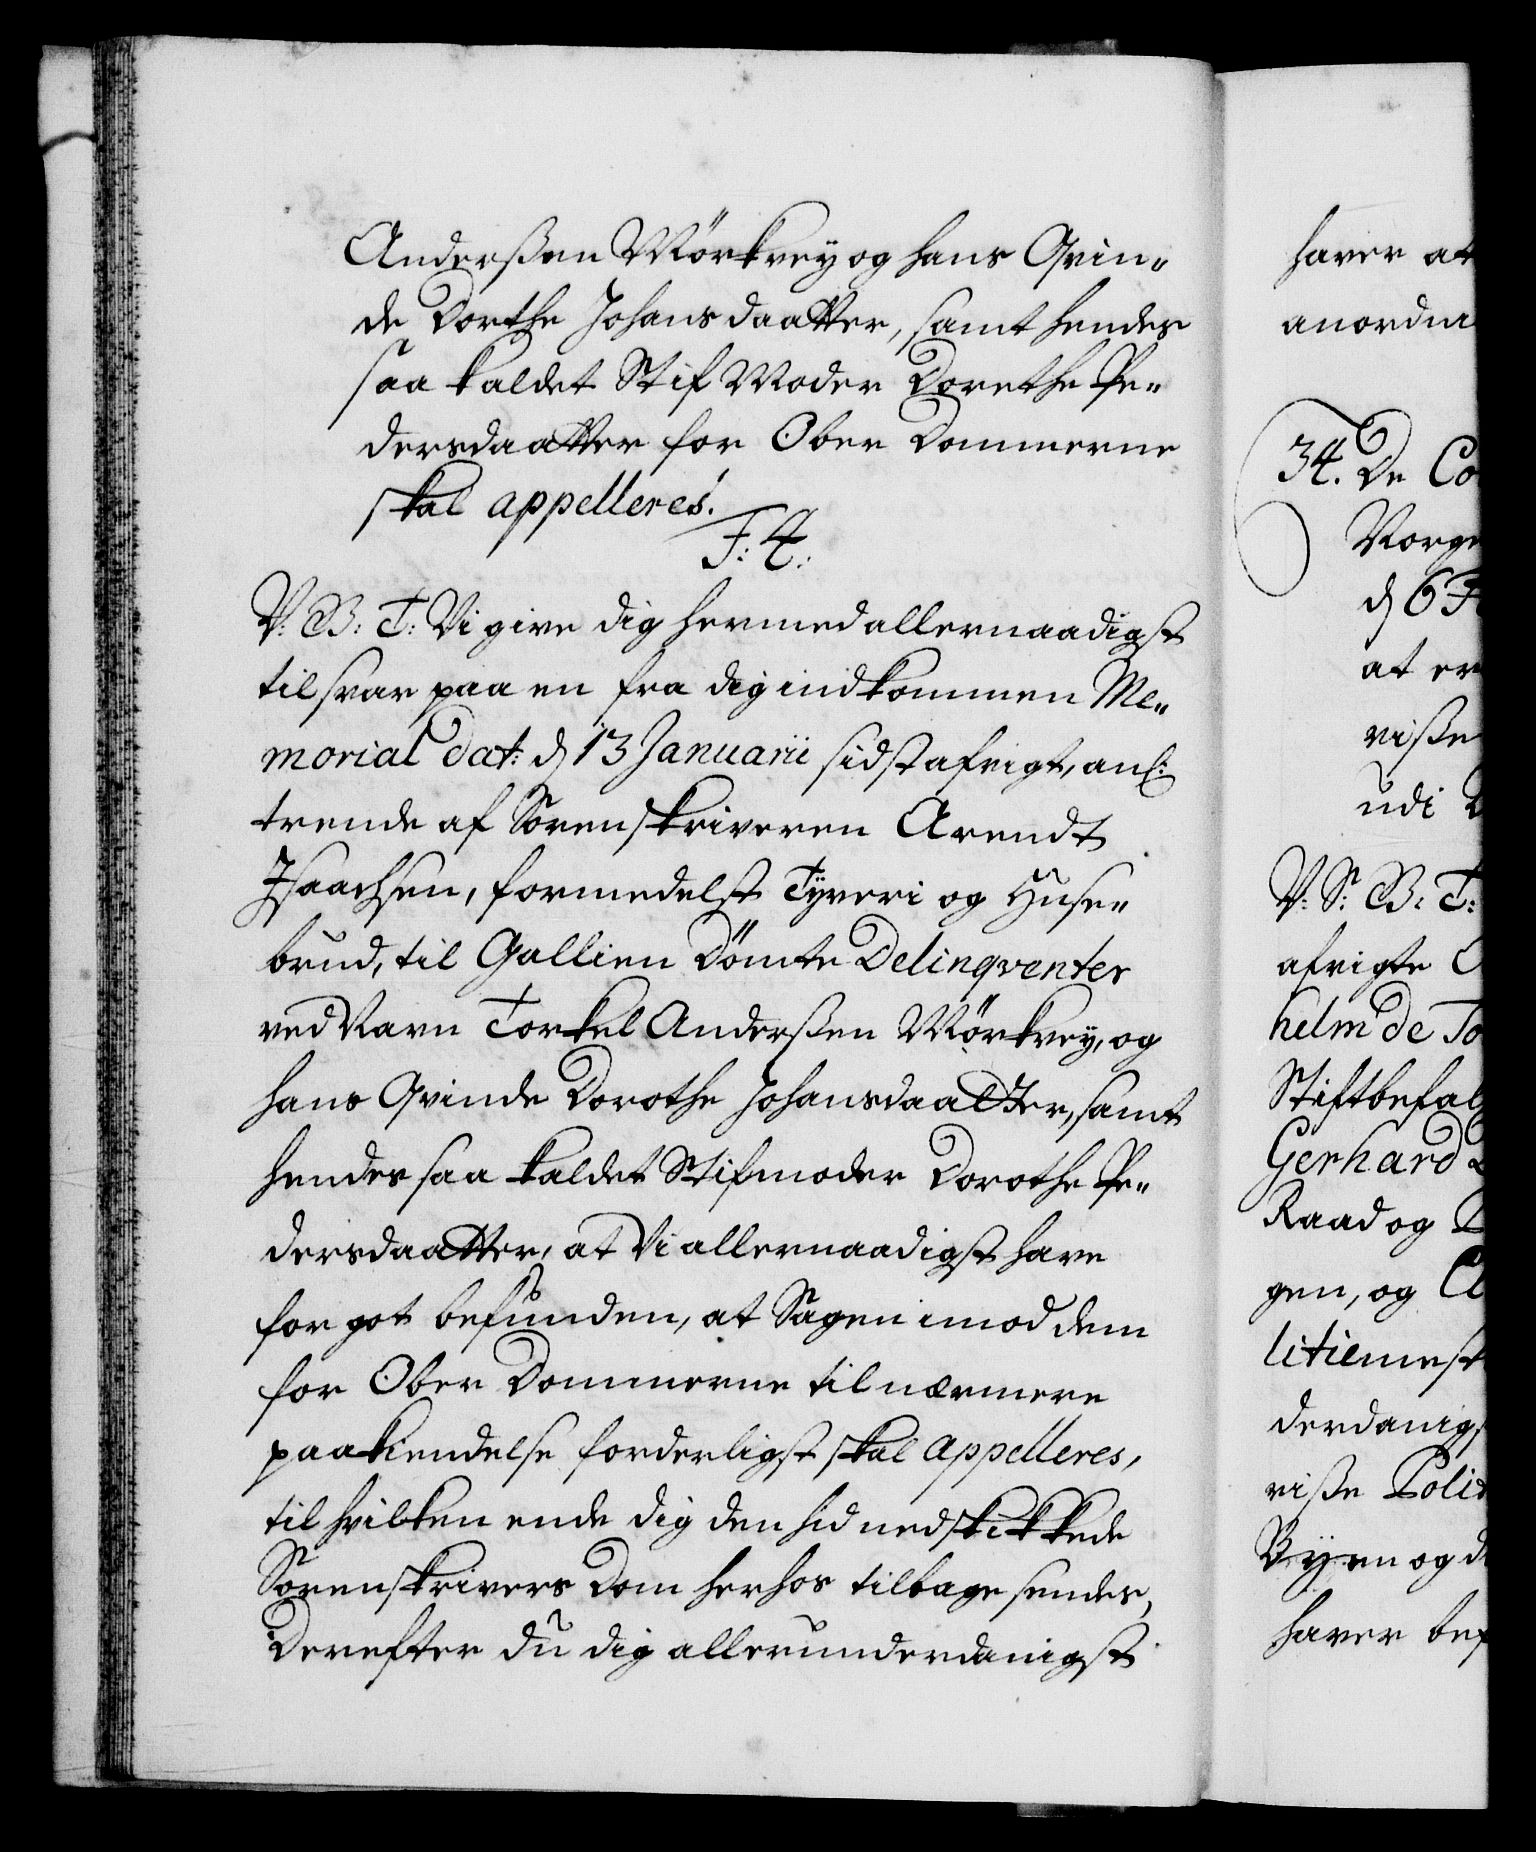 Anderssen Mørkvey og hans Qvin-
de Dorthe Johansdaatter, samt hendes
saa kaldet Stif Moder Dorethe Pe-
dersdaatter for Ober Dommerne
skal appelleres.
F: 4:
V: B: T: Vi give dig hermed allernaadigst
til svar paa en fra dig indkommen Me-
morial dat: d 13 Januarii sidst afvigt, anl:
trende af Sorenskriveren Arendt
Isaachsen, formedelst Tyveri og Huse-
brud, til Gallien Dømte Delinqventer
ved Navn Torkel Anderssen Mørkvey, og
hans Qvinde Dorothe Johansdaatter, samt
hendes saa kaldet Stifmoder Dorothe Pe-
dersdaatter, at Vi allernaadigst have
for got befunden, at Sagen imod dem
for Ober Dommerne til nærmere
paakiendelse forderligst skal appelleres,
til hvilken ende dig den hid nedskikkede
Sorenskrivers Dom herhos tilbage sendes,
Derefter du dig allerunderdanigst
haver at
anordne
34. De Co
Norge
d 6 F
at er
visse
udi
V: S: B: T:
afvigte
helm de To
Stiftbefal
Gerhard
Raad og
gen, og Cl
litiemest
derdanigs
visse Polit
Byen og d
haver bef